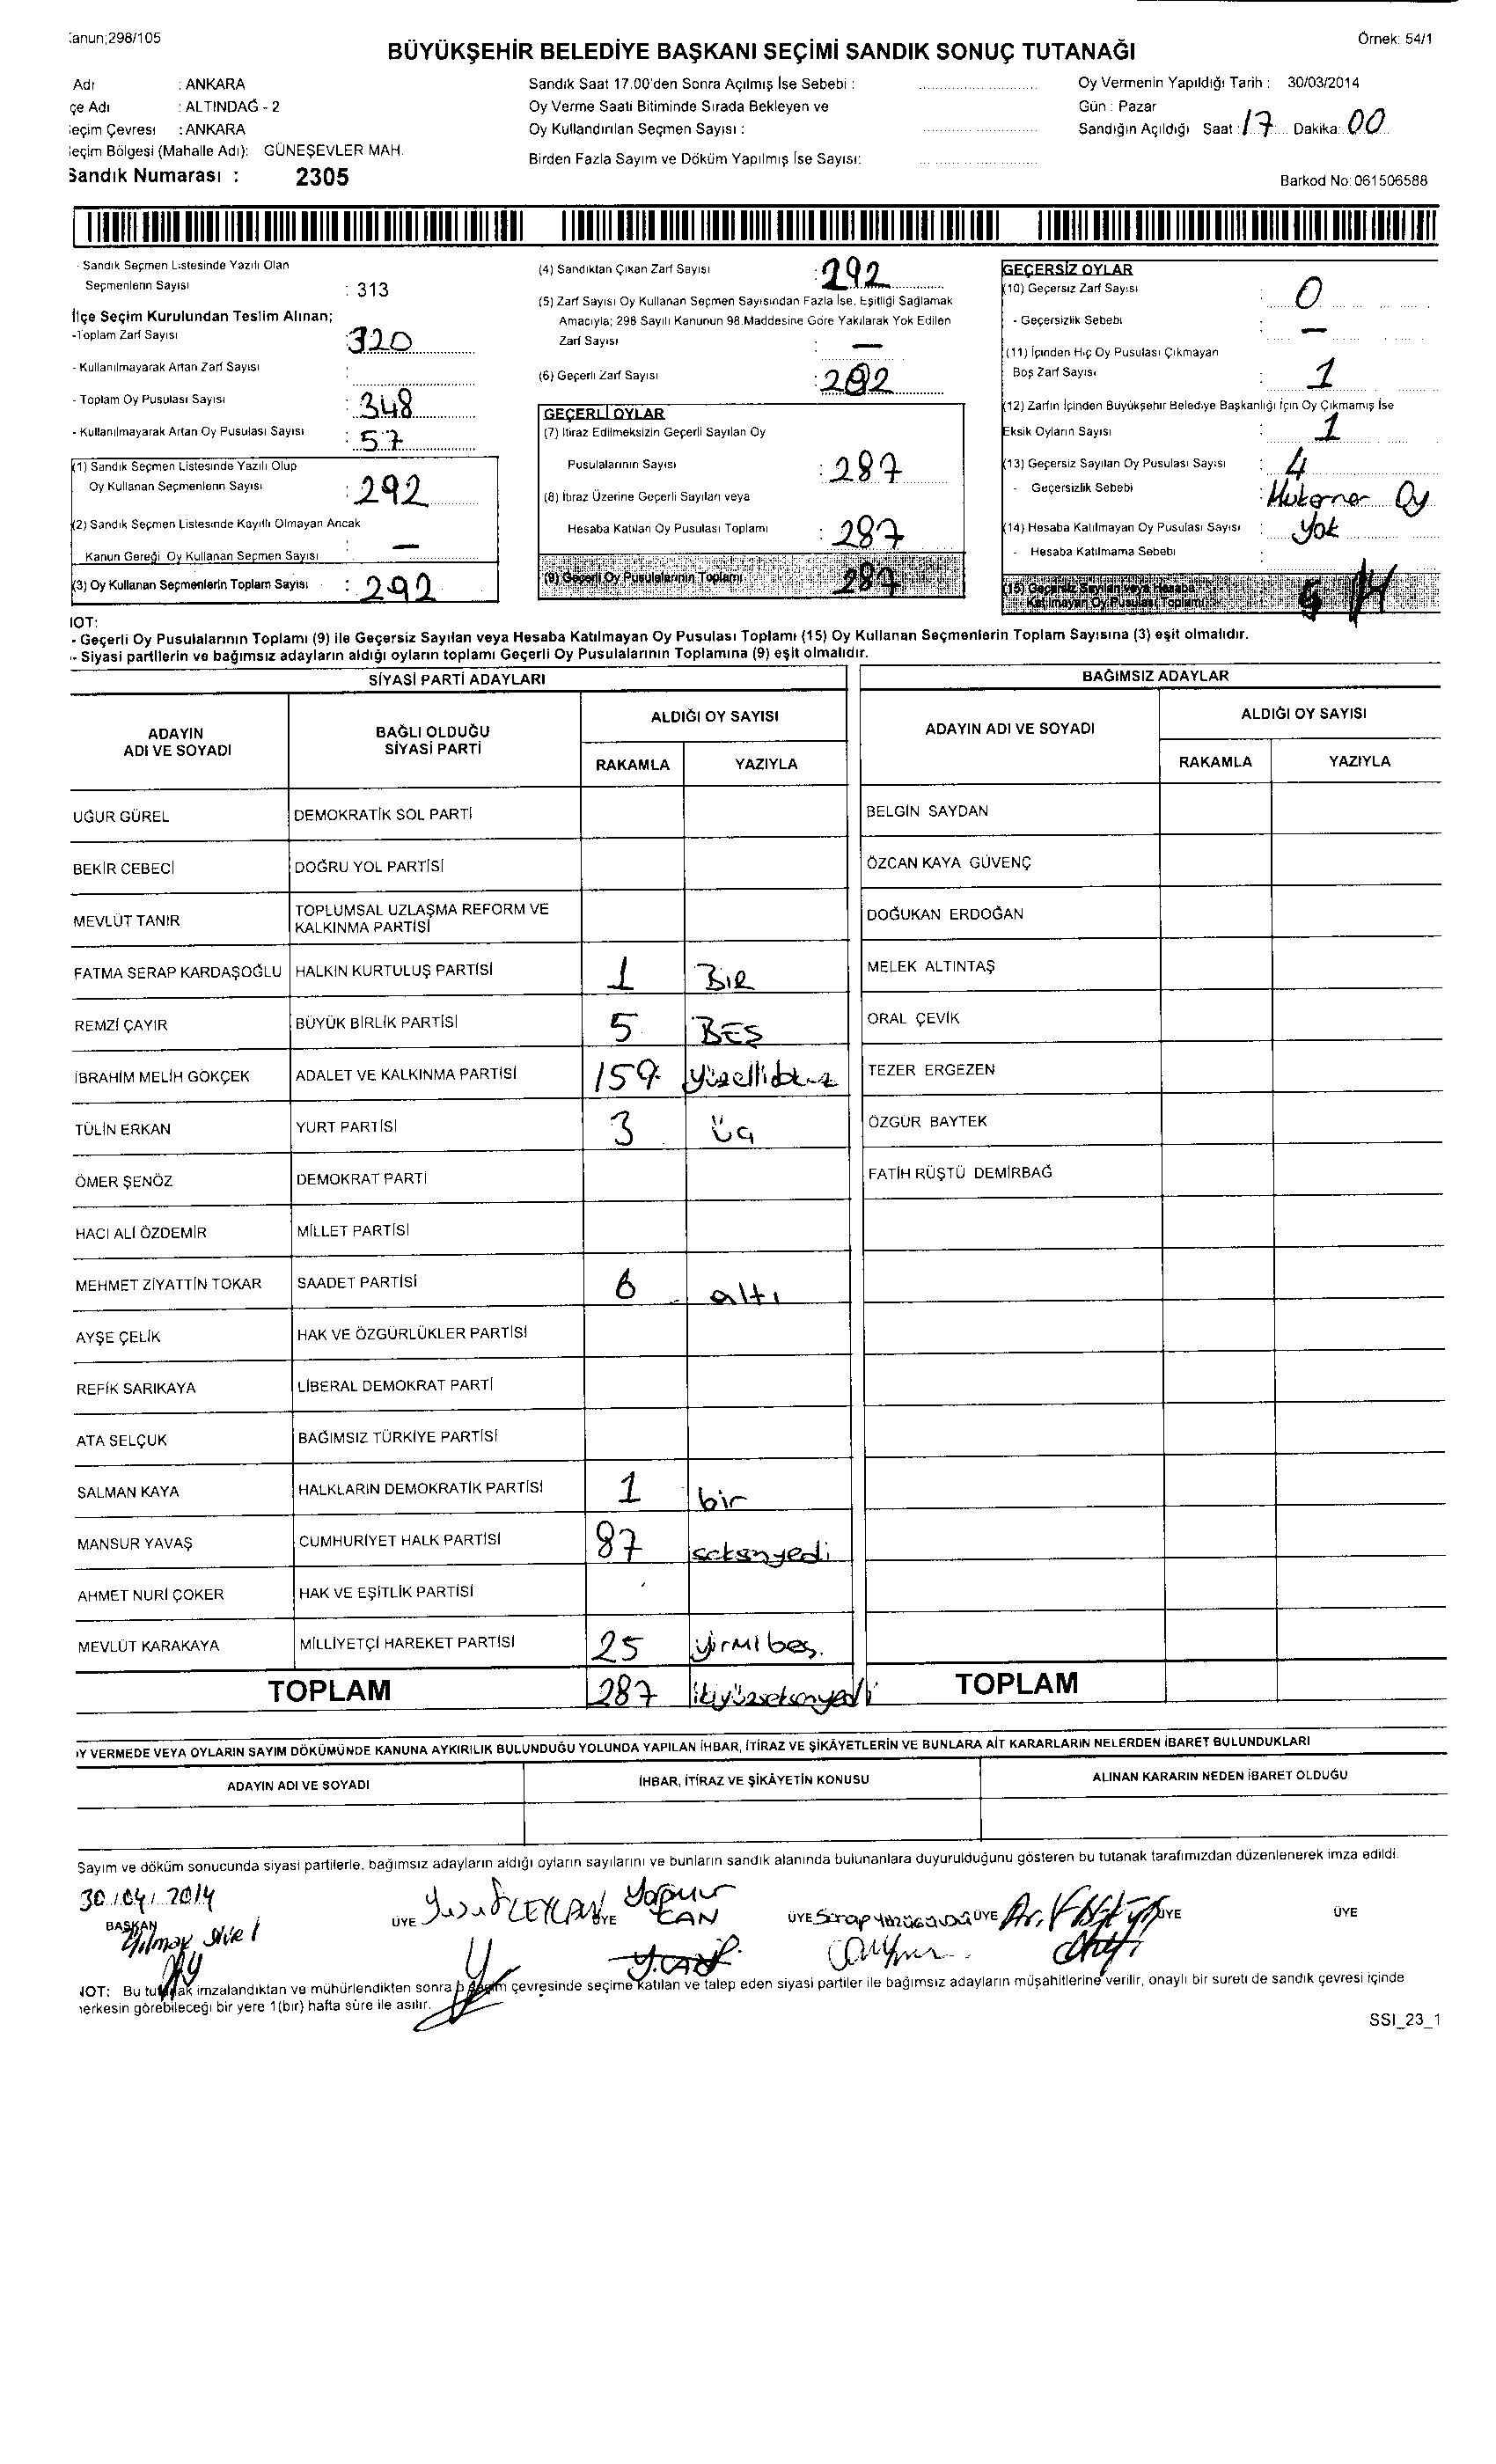 anun;298/105
Örnek: 54/1
BÜYÜKŞEHİR BELEDİYE BAŞKANI SEÇİMİ SANDIK SONUÇ TUTANAĞI
Adı : ANKARA
çe Adı : ALTINDAĞ - 2
eçim Çevresi : ANKARA
eçim Bölgesi (Mahalle Adı): GÜNEŞEVLER MAH.
Sandık Numarası : 2305
Sandık Saat 17.00'den Sonra Açılmış İse Sebebi :
Oy Verme Saati Bitiminde Sırada Bekleyen ve
Oy Kullandırılan Seçmen Sayısı :
Birden Fazla Sayım ve Döküm Yapılmış İse Sayısı:
Oy Vermenin Yapıldığı Tarih : 30/03/2014
Gün : Pazar
Sandığın Açıldığı Saat : 17 Dakika: 00
Barkod No: 061506588
- Sandık Seçmen Listesinde Yazılı Olan
Seçmenlerin Sayısı : 313
İlçe Seçim Kurulundan Teslim Alınan;
-Toplam Zarf Sayısı 320
- Kullanılmayarak Artan Zarf Sayısı :
- Toplam Oy Pusulası Sayısı : 348
- Kullanılmayarak Artan Oy Pusulası Sayısı : 57
(1) Sandık Seçmen Listesinde Yazılı Olup
Oy Kullanan Seçmenlerin Sayısı : 292
(2) Sandık Seçmen Listesinde Kayıtlı Olmayan Ancak
Kanun Gereği Oy Kullanan Seçmen Sayısı : —
(3) Oy Kullanan Seçmenlerin Toplam Sayısı : 292
(4) Sandıktan Çıkan Zarf Sayısı : 292
(5) Zarf Sayısı Oy Kullanan Seçmen Sayısından Fazla İse, Eşitliği Sağlamak
Amacıyla; 298 Sayılı Kanunun 98.Maddesine Göre Yakılarak Yok Edilen
Zarf Sayısı : —
(6) Geçerli Zarf Sayısı : 292
GEÇERLİ OYLAR
(7) İtiraz Edilmeksizin Geçerli Sayılan Oy
Pusulalarının Sayısı : 287
(8) İtiraz Üzerine Geçerli Sayılan veya
Hesaba Katılan Oy Pusulası Toplamı : 287
(9) Geçerli Oy Pusulalarının Toplamı 287
GEÇERSİZ OYLAR
(10) Geçersiz Zarf Sayısı : 0
- Geçersizlik Sebebi : —
(11) İçinden Hiç Oy Pusulası Çıkmayan
Boş Zarf Sayısı : 1
(12) Zarfın İçinden Büyükşehir Belediye Başkanlığı İçin Oy Çıkmamış İse
Eksik Oyların Sayısı : 1
(13) Geçersiz Sayılan Oy Pusulası Sayısı : 4
- Geçersizlik Sebebi : Mükerrer Oy
(14) Hesaba Katılmayan Oy Pusulası Sayısı : Yok
- Hesaba Katılmama Sebebi :
(15) Geçersiz Sayılan veya Hesaba
Katılmayan Oy Pusulası Toplamı
NOT:
- Geçerli Oy Pusulalarının Toplamı (9) ile Geçersiz Sayılan veya Hesaba Katılmayan Oy Pusulası Toplamı (15) Oy Kullanan Seçmenlerin Toplam Sayısına (3) eşit olmalıdır.
- Siyasi partilerin ve bağımsız adayların aldığı oyların toplamı Geçerli Oy Pusulalarının Toplamına (9) eşit olmalıdır.
SİYASİ PARTİ ADAYLARI
BAĞIMSIZ ADAYLAR
ADAYIN ADI VE SOYADI
BAĞLI OLDUĞU SİYASİ PARTİ
ALDIĞI OY SAYISI
RAKAMLA YAZIYLA
ADAYIN ADI VE SOYADI
ALDIĞI OY SAYISI
RAKAMLA YAZIYLA
UĞUR GÜREL DEMOKRATİK SOL PARTİ BELGİN SAYDAN
BEKİR CEBECİ DOĞRU YOL PARTİSİ ÖZCAN KAYA GÜVENÇ
MEVLÜT TANIR TOPLUMSAL UZLAŞMA REFORM VE KALKINMA PARTİSİ DOĞUKAN ERDOĞAN
FATMA SERAP KARDAŞOĞLU HALKIN KURTULUŞ PARTİSİ 1 BİR MELEK ALTINTAŞ
REMZİ ÇAYIR BÜYÜK BİRLİK PARTİSİ 5 BEŞ ORAL ÇEVİK
İBRAHİM MELİH GÖKÇEK ADALET VE KALKINMA PARTİSİ 159 TEZER ERGEZEN
TÜLİN ERKAN YURT PARTİSİ 3 üç ÖZGÜR BAYTEK
ÖMER ŞENÖZ DEMOKRAT PARTİ FATİH RÜŞTÜ DEMİRBAĞ
HACI ALİ ÖZDEMİR MİLLET PARTİSİ
MEHMET ZİYATTİN TOKAR SAADET PARTİSİ 6 altı
AYŞE ÇELİK HAK VE ÖZGÜRLÜKLER PARTİSİ
REFİK SARIKAYA LİBERAL DEMOKRAT PARTİ
ATA SELÇUK BAĞIMSIZ TÜRKİYE PARTİSİ
SALMAN KAYA HALKLARIN DEMOKRATİK PARTİSİ 1 bir
MANSUR YAVAŞ CUMHURİYET HALK PARTİSİ 87 seksenyedi
AHMET NURİ ÇOKER HAK VE EŞİTLİK PARTİSİ
MEVLÜT KARAKAYA MİLLİYETÇİ HAREKET PARTİSİ 25 yirmi beş.
TOPLAM 287 ikiyüzseksenyedi TOPLAM
OY VERMEDE VEYA OYLARIN SAYIM DÖKÜMÜNDE KANUNA AYKIRILIK BULUNDUĞU YOLUNDA YAPILAN İHBAR, İTİRAZ VE ŞİKÂYETLERİN VE BUNLARA AİT KARARLARIN NELERDEN İBARET BULUNDUKLARI
ADAYIN ADI VE SOYADI İHBAR, İTİRAZ VE ŞİKÂYETİN KONUSU ALINAN KARARIN NEDEN İBARET OLDUĞU
Sayım ve döküm sonucunda siyasi partilerle, bağımsız adayların aldığı oyların sayılarını ve bunların sandık alanında bulunanlara duyurulduğunu gösteren bu tutanak tarafımızdan düzenlenerek imza edildi.
30/04/2014
BAŞKAN ÜYE Yusuf CEYLAN ÜYE CAN ÜYE Serap ÜYE ÜYE ÜYE
Yılmaz
NOT: Bu tutanak imzalandıktan ve mühürlendikten sonra çevresinde seçime katılan ve talep eden siyasi partiler ile bağımsız adayların müşahitlerine verilir, onaylı bir sureti de sandık çevresi içinde
herkesin görebileceği bir yere 1(bir) hafta süre ile asılır.
SSI_23_1